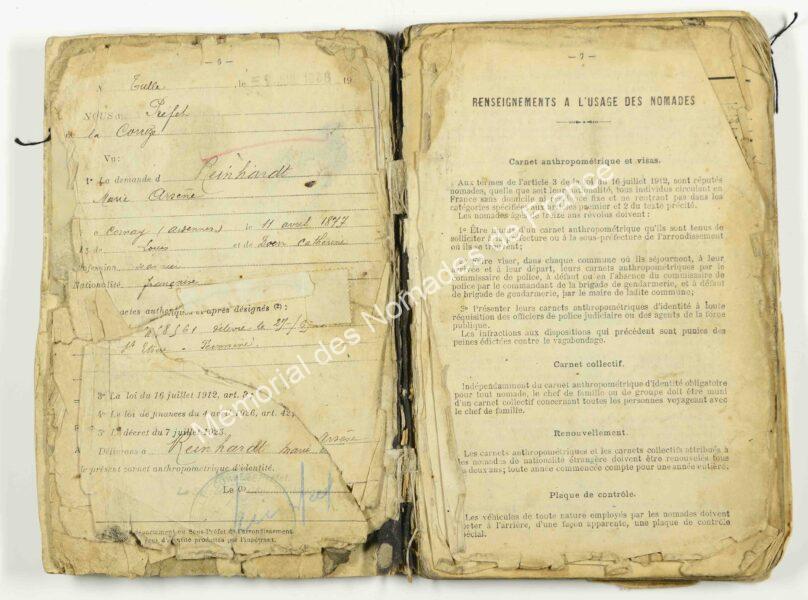 — 6 —
Tulle, le 1938 19
NOUS Préfet
de la Corrèze
Vu :
1° La demande d Reinhardt
Marie Arsène
à Cornay (Ardennes) le 11 avril 1877
de Louis et de Catherine
Nationalité française
actes authentiques ci-après désignés (2) :
délivré le
3° La loi du 16 juillet 1912, art. 3 ;
4° La loi de finances du 4 avril 1926, art. 42 ;
5° Le décret du 7 juillet 1926.
Délivrons à Reinhardt Marie Arsène
le présent carnet anthropométrique d'identité.
Le
département ou Sous-Préfet de l'arrondissement.
d'identité produites par l'impétrant.
— 7 —
RENSEIGNEMENTS A L'USAGE DES NOMADES
Carnet anthropométrique et visas.
Aux termes de l'article 3 de la loi du 16 juillet 1912, sont réputés
nomades, quelle que soit leur nationalité, tous individus circulant en
France sans domicile ni résidence fixe et ne rentrant pas dans les
catégories spécifiées aux articles premier et 2 du texte précité.
Les nomades âgés de treize ans révolus doivent :
1° Être munis d'un carnet anthropométrique qu'ils sont tenus de
solliciter à la préfecture ou à la sous-préfecture de l'arrondissement
où ils se trouvent ;
2° Faire viser, dans chaque commune où ils séjournent, à leur
arrivée et à leur départ, leurs carnets anthropométriques par le
commissaire de police, à défaut ou en l'absence du commissaire de
police par le commandant de la brigade de gendarmerie, et à défaut
de brigade de gendarmerie, par le maire de ladite commune ;
3° Présenter leurs carnets anthropométriques d'identité à toute
réquisition des officiers de police judiciaire ou des agents de la force
publique.
Les infractions aux dispositions qui précédent sont punies des
peines édictées contre le vagabondage.
Carnet collectif.
Indépendamment du carnet anthropométrique d'identité obligatoire
pour tout nomade, le chef de famille ou de groupe doit être muni
d'un carnet collectif concernant toutes les personnes voyageant avec
le chef de famille.
Renouvellement.
Les carnets anthropométriques et les carnets collectifs attribués à
les nomades de nationalité étrangère doivent être renouvelés tous
les deux ans ; toute année commencée compte pour une année entière.
Plaque de contrôle.
Les véhicules de toute nature employés par les nomades doivent
porter à l'arrière, d'une façon apparente, une plaque de contrôle
spécial.
Mémorial des Nomades de France